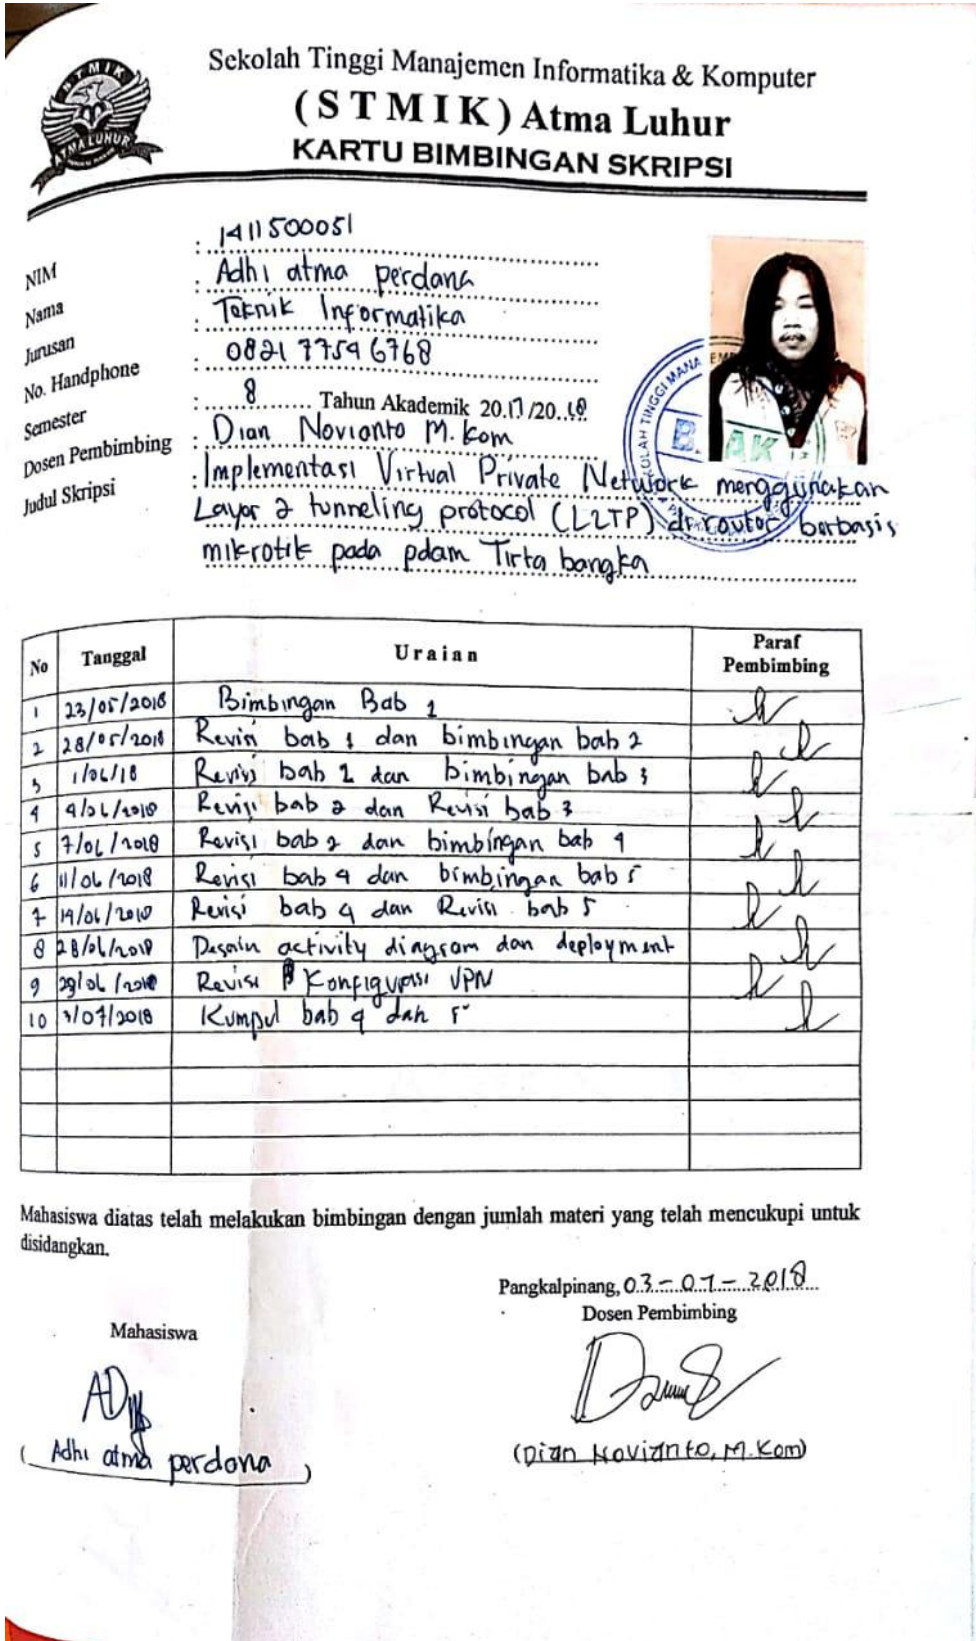 STMIK
ATMA LUHUR
Sekolah Tinggi Manajemen Informatika & Komputer
(STMIK) Atma Luhur
KARTU BIMBINGAN SKRIPSI
NIM : 1411500051
Nama : Adhi atma perdana
Jurusan : Teknik Informatika
No. Handphone : 0821 7759 6768
Semester : 8 Tahun Akademik 20.17/20.18
Dosen Pembimbing : Dian Novianto M.Kom
Judul Skripsi : Implementasi Virtual Private Network menggunakan
Layer 2 tunneling protocol (L2TP) di router berbasis
mikrotik pada pdam Tirta bangka
No Tanggal Uraian Paraf Pembimbing
1 23/05/2018 Bimbingan Bab 1
2 28/05/2018 Revisi bab 1 dan bimbingan bab 2
3 1/06/18 Revisi bab 2 dan bimbingan bab 3
4 4/06/2018 Revisi bab 2 dan Revisi bab 3
5 7/06/2018 Revisi bab 2 dan bimbingan bab 4
6 11/06/2018 Revisi bab 4 dan bimbingan bab 5
7 14/06/2018 Revisi bab 4 dan Revisi bab 5
8 28/06/2018 Desain activity diagram dan deployment
9 29/06/2018 Revisi Konfigurasi VPN
10 3/07/2018 Kumpul bab 4 dan 5
Mahasiswa diatas telah melakukan bimbingan dengan jumlah materi yang telah mencukupi untuk
disidangkan.
Pangkalpinang, 03-07-2018
Dosen Pembimbing
Mahasiswa
(Adhi atma perdana)
(Dian Novianto, M.Kom)